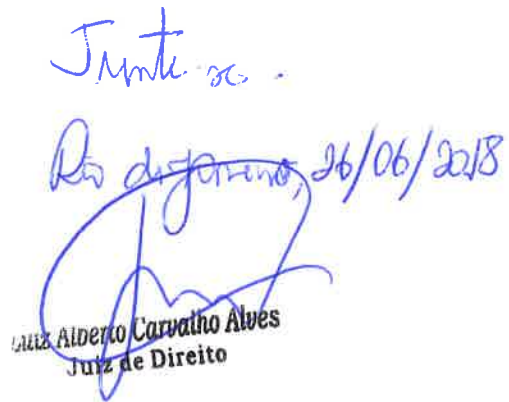 Junte-se.
Rio de Janeiro, 26/06/2018
Luiz Alberto Carvalho Alves
Juiz de Direito